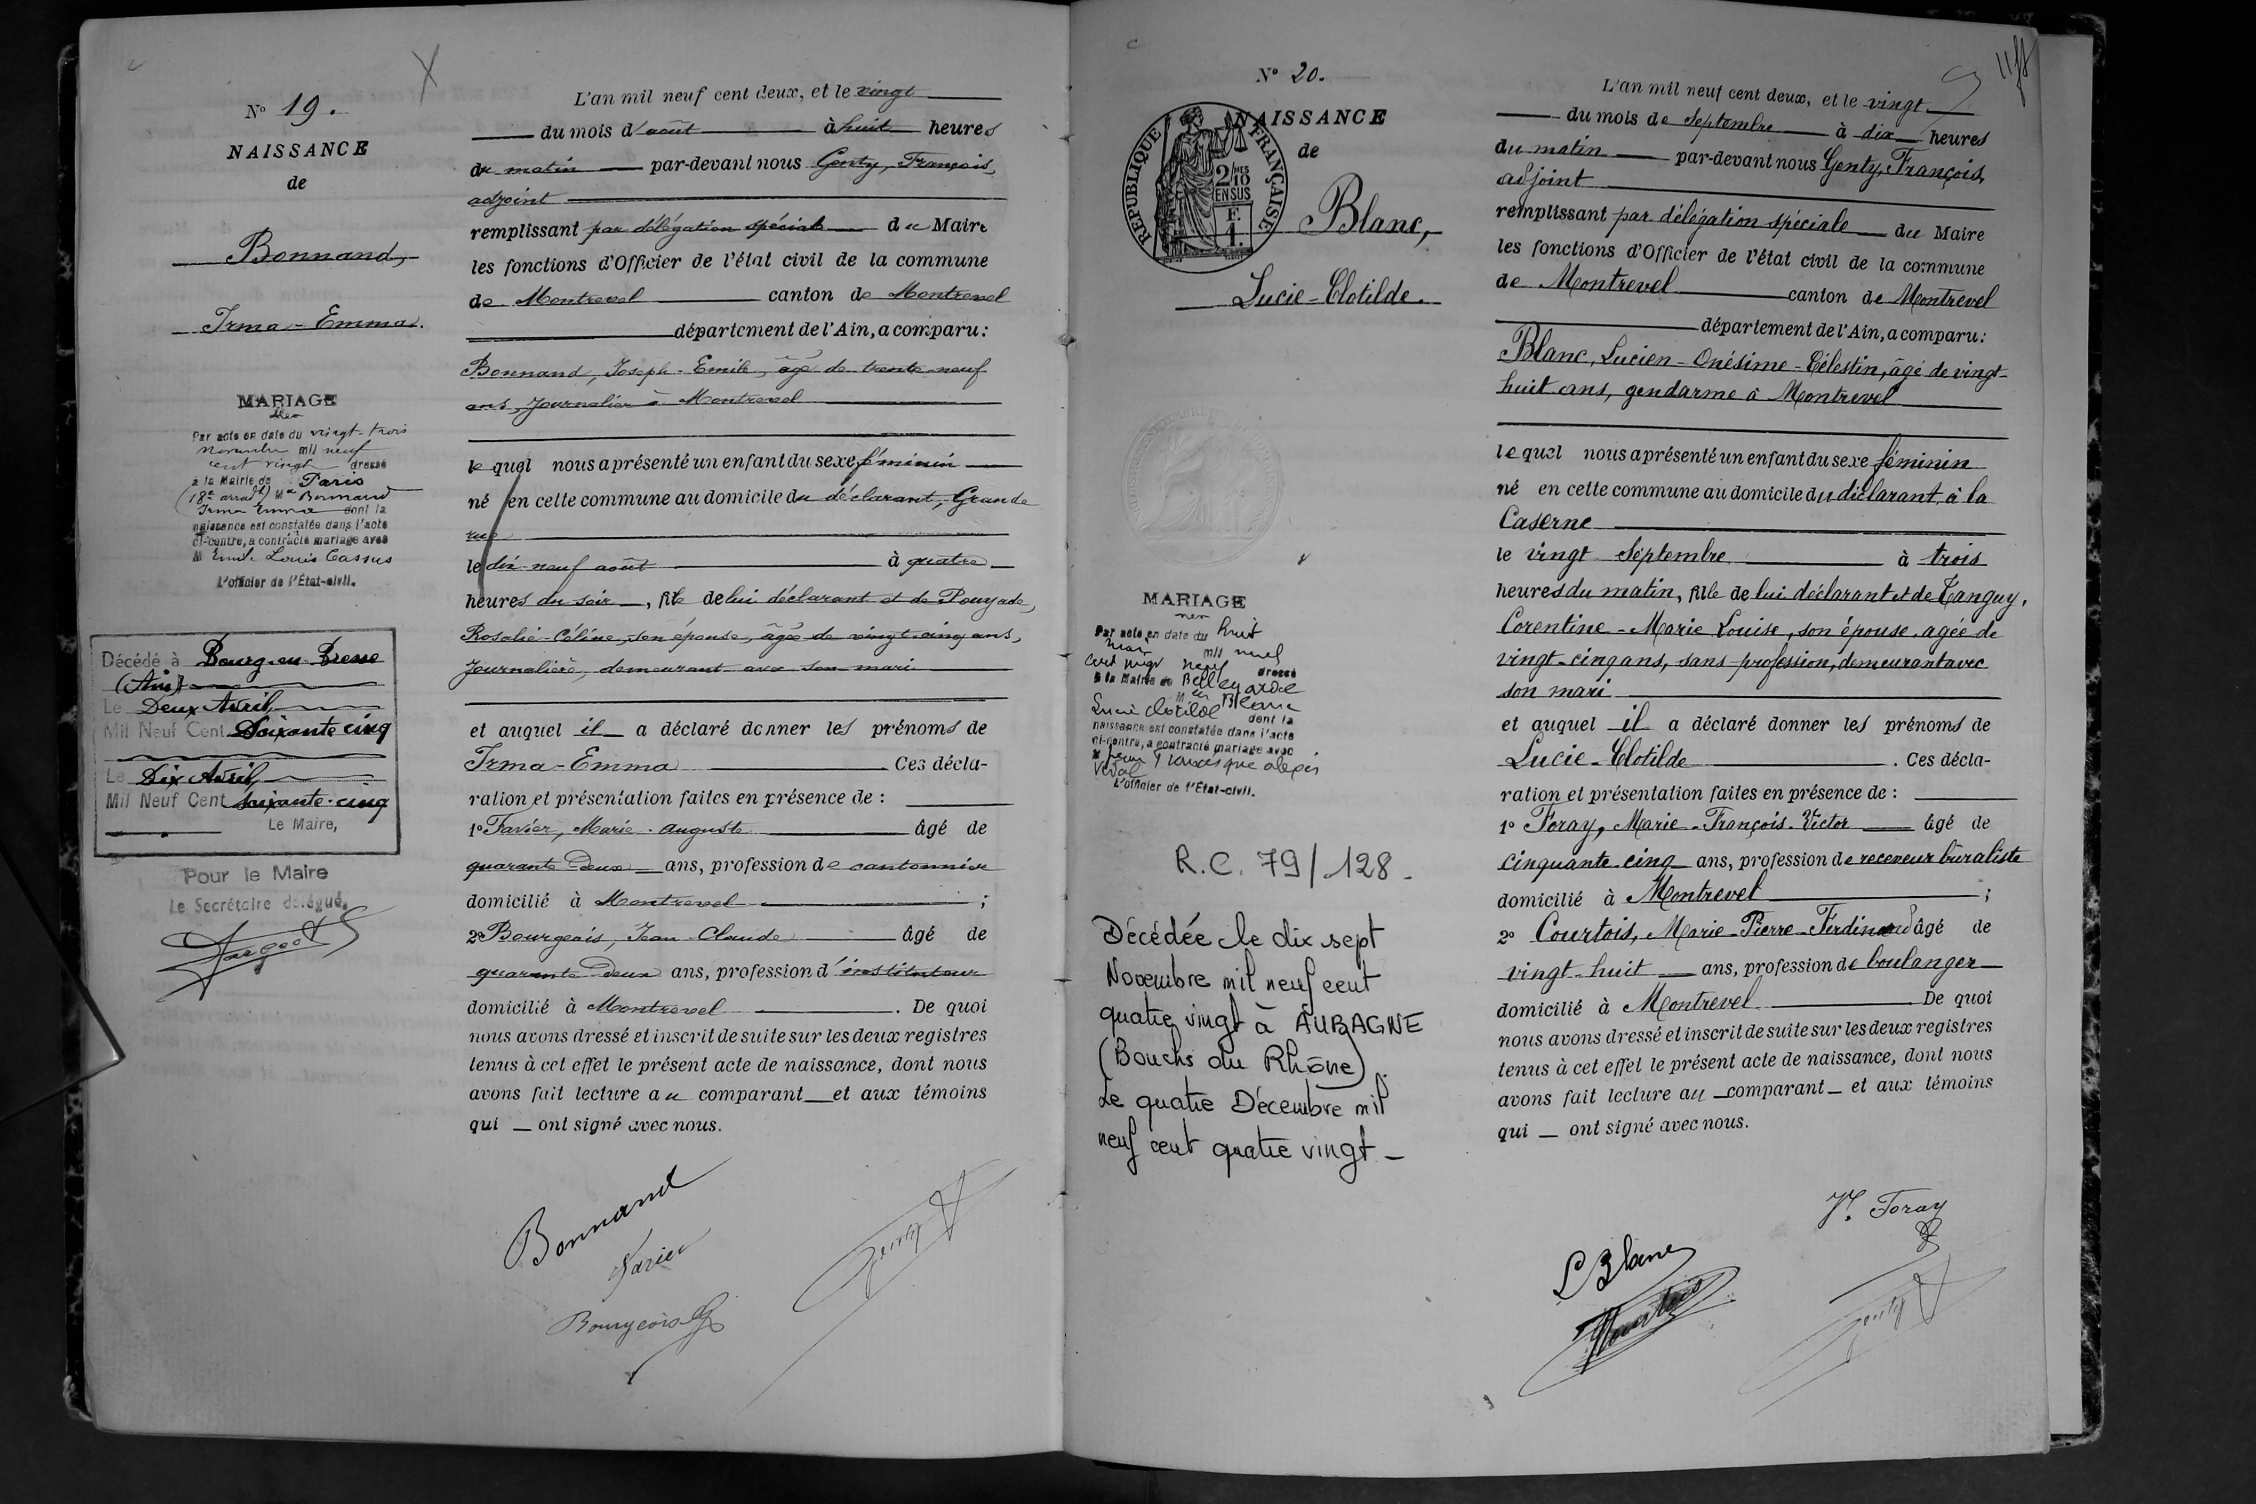 N° 19.
NAISSANCE
de
Bonnand,
Irma-Emma.
MARIAGE
Par acte en date du vingt-trois
novembre mil neuf
cent vingt dressé
à la Mairie de Paris
(18e arrdt) Mlle Bonnand
Irma Emma dont la
naissance est constatée dans l'acte
ci-contre, a contracté mariage avec
M Emile Louis Cassus
L'officier de l'État-civil.
Décédé à Bourg-en-Bresse
(Ain)
Le Deux Avril,
Mil Neuf Cent Soixante cinq
Le Dix Avril,
Mil Neuf Cent soixante-cinq
Le Maire,
Pour le Maire
Le Secrétaire délégué,
L'an mil neuf cent deux, et le vingt
du mois d'août à huit heures
du matin par-devant nous Genty, François,
adjoint
remplissant par délégation spéciale du Maire
les fonctions d'Officier de l'état civil de la commune
de Montrevel canton de Montrevel
département de l'Ain, a comparu:
Bonnand, Joseph-Emile, âgé de trente-neuf
ans, Journalier à Montrevel
lequel nous a présenté un enfant du sexe féminin
né en cette commune au domicile du déclarant, Grande
rue
le dix-neuf août à quatre
heures du soir, fille de lui déclarant et de Pouyade,
Rosalie-Céline, son épouse, âgée de vingt-cinq ans,
Journalière, demeurant avec son mari
et auquel il a déclaré donner les prénoms de
Irma-Emma Ces décla-
ration et présentation faites en présence de :
1° Favier, Marie-Auguste âgé de
quarante deux ans, profession de cantonnier
domicilié à Montrevel ;
2° Bourgeois, Jean-Claude âgé de
quarante-deux ans, profession d'instituteur
domicilié à Montrevel . De quoi
nous avons dressé et inscrit de suite sur les deux registres
tenus à cet effet le présent acte de naissance, dont nous
avons fait lecture au comparant et aux témoins
qui ont signé avec nous.
Bonnand
Favier
Genty
Bourgeois
N° 20.
NAISSANCE
de
RÉPUBLIQUE FRANÇAISE
2/10MES
EN SUS
F.
1.
Blanc,
Lucie-Clotilde.
MARIAGE
Par acte en date du huit
mars mil neuf
cent vingt neuf dressé
à la Mairie de Bellegarde
Lucie Clotilde Blanc
dont la
naissance est constatée dans l'acte
ci-contre, a contracté mariage avec
L'officier de l'État-civil.
R.C. 79/128.
Décédée le dix sept
Novembre mil neuf cent
quatre vingt à AUBAGNE
(Bouchs du Rhône).
Le quatre Décembre mil
neuf cent quatre vingt -
L'an mil neuf cent deux, et le vingt
du mois de Septembre à dix heures
du matin par-devant nous Genty, François,
adjoint
remplissant par délégation spéciale du Maire
les fonctions d'Officier de l'état civil de la commune
de Montrevel canton de Montrevel
département de l'Ain, a comparu:
Blanc, Lucien-Onésime-Célestin, âgé de vingt-
huit ans, gendarme à Montrevel
lequel nous a présenté un enfant du sexe féminin
né en cette commune au domicile du déclarant, à la
Caserne
le vingt Septembre à trois
heures du matin, fille de lui déclarant et de Tanguy,
Corentine-Marie Louise, son épouse, agée de
vingt-cinq ans, sans profession, demeurant avec
son mari
et auquel il a déclaré donner les prénoms de
Lucie-Clotilde . Ces décla-
ration et présentation faites en présence de :
1° Foray, Marie-François-Victor âgé de
cinquante-cinq ans, profession de receveur buraliste
domicilié à Montrevel ;
2° Courtois, Marie-Pierre-Ferdinand âgé de
vingt-huit ans, profession de boulanger
domicilié à Montrevel De quoi
nous avons dressé et inscrit de suite sur les deux registres
tenus à cet effet le présent acte de naissance, dont nous
avons fait lecture au comparant et aux témoins
qui ont signé avec nous.
Vr. Foray
L Blanc
Courtois
Genty